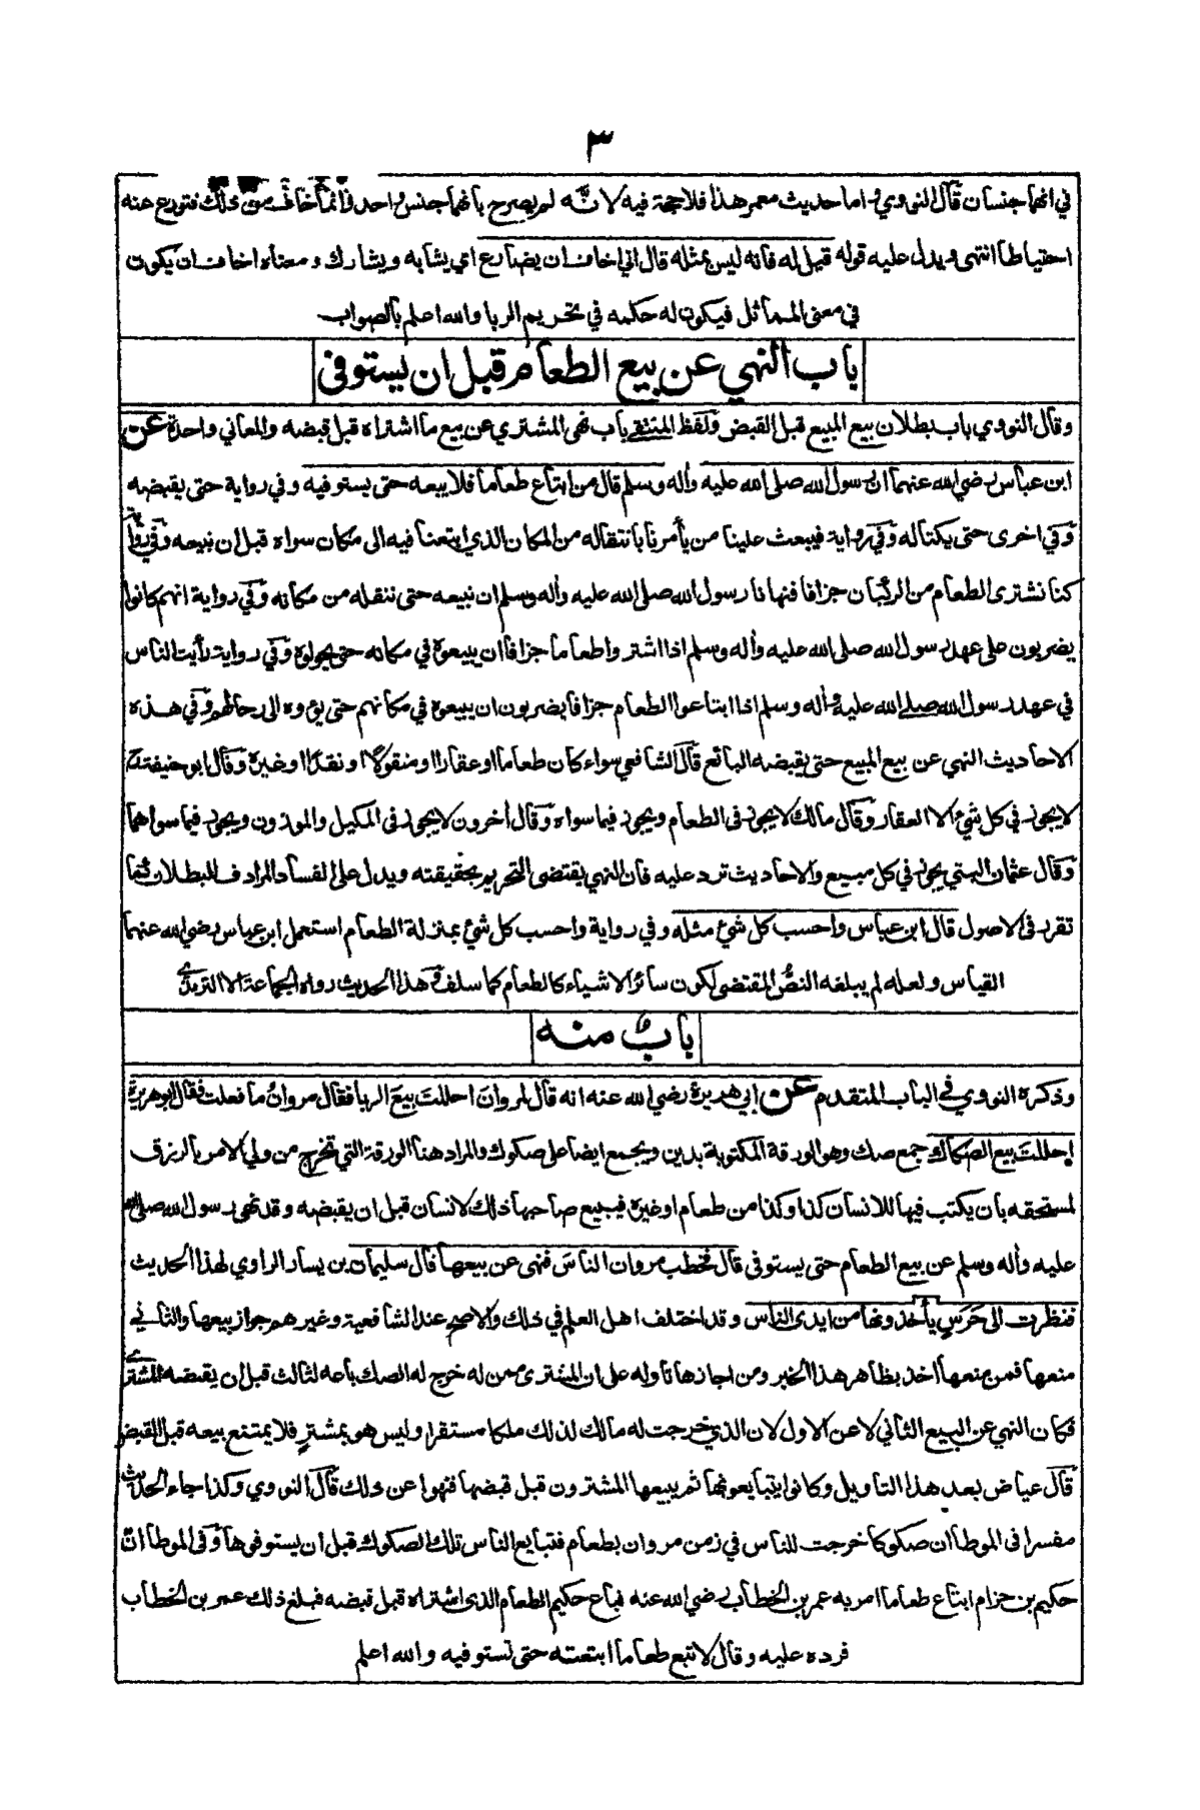 ٣
في انهما جنسان قال النووي واما حديث معمر هذا فلا حجة فيه لانّه لم يصرح بانهما جنس واحد وانما خاف من ذلك فتورع عنه
احتياطا انتهى ويدل عليه قوله قيل له فانه ليس بمثله قال اني اخاف ان يضارع اي يشابه ويشارك ومعناه اخاف ان يكون
في معنى المماثل فيكون له حكمه في تحريم الربا والله اعلم بالصواب
باب النهي عن بيع الطعام قبل ان يستوفى
وقال النووي باب بطلان بيع المبيع قبل القبض ولفظ المنتقى باب نهى المشتري عن بيع ما اشتراه قبل قبضه والمعاني واحدة عن
ابن عباس رضي الله عنهما ان رسول الله صلى الله عليه وأله وسلم قال من ابتاع طعاما فلا يبعه حتى يستوفيه وفي رواية حتى يقبضه
وفي اخرى حتى يكتاله وفي رواية فيبعث علينا من يأمرنا بانتقاله من المكان الذي ابتعنا فيه الى مكان سواه قبل ان نبيعه وفي رواية
كنا نشترى الطعام من الركبان جزافا فنهانا رسول الله صلى الله عليه وأله وسلم ان نبيعه حتى ننقله من مكانه وفي رواية انهم كانوا
يضربون على عهد رسول الله صلى الله عليه وأله وسلم اذا اشتروا طعاما جزافا ان يبيعوه في مكانه حتى يحولوه وفي رواية رأيت الناس
في عهد رسول الله صلى الله عليه وأله وسلم اذا ابتاعوا الطعام جزافا يضربون ان يبيعوه في مكانهم حتى يؤوه الى رحالهم وفي هذه
الاحاديث النهي عن بيع المبيع حتى يقبضه البائع قال الشافعي سواء كان طعاما او عقارا او منقولا او نقدا او غيره وقال ابو حنيفة
لا يجوز في كل شئ الا العقار وقال مالك لا يجوز فى الطعام ويجوز فيما سواه وقال أخرون لا يجوز فى المكيل والموزون ويجوز فيما سواهما
وقال عثمان البتي يجوز في كل مبيع والاحاديث ترد عليه فان النهي يقتضى التحريم بحقيقته ويدل على الفساد المرادف للبطلان كما
تقرر فى الاصول قال ابن عباس واحسب كل شئ مثله وفي رواية واحسب كل شئ بمنزلة الطعام استعمل ابن عباس رضي الله عنهما
القياس ولعله لم يبلغه النصُّ المقتضى لكون سائر الاشياء كالطعام كما سلف وهذا الحديث رواه الجماعة الا الترمذي
باب منه
وذكره النووي في الباب المتقدم عن ابي هريرة رضي الله عنه انه قال لمروان احللتَ بيعَ الربا فقال مروانُ ما فعلت فقال ابو هريرة
احللتَ بيع الصكاك جمع صك وهو الورقة المكتوبة بدين ويجمع ايضا على صكوك والمراد هنا الورقة التي تخرج من ولي الامر بالرزق
لمستحقه بان يكتب فيها للانسان كذا وكذا من طعام او غيره فيبيع صاحبها ذلك لانسان قبل ان يقبضه وقد نهى رسول الله صلى الله
عليه وأله وسلم عن بيع الطعام حتى يستوفى قال فخطب مروان الناسَ فنهى عن بيعها قال سليمان بن يسار الراوي لهذا الحديث
فنظرت الى حَرَسٍ يأخذونها من ايدى الناس وقد اختلف اهل العلم في ذلك والاصح عند الشافعية وغيرهم جواز بيعها والثاني
منعها فمن منعها اخذ بظاهر هذا الخبر ومن اجازها تاوله على ان المشترى ممن له خرج له الصك باعه لثالث قبل ان يقبضه المشتري
فكان النهي عن البيع الثاني لا عن الاول لان الذي خرجت له مالك لذلك ملكا مستقرا وليس هو بمشترٍ فلا يمتنع بيعه قبل القبض
قال عياض بعد هذا التاويل وكانوا يتبايعونها ثم يبيعها المشترون قبل قبضها فنهوا عن ذلك قال النووي وكذا جاء الحديث
مفسرا فى الموطا ان صكوكا خرجت للناس في زمن مروان بطعام فتبايع الناس تلك الصكوك قبل ان يستوفوها وفى الموطا انّ
حكيم بن حزام ابتاع طعاما امر به عمر بن الخطاب رضي الله عنه فباع حكيم الطعام الذى اشتراه قبل قبضه فبلغ ذلك عمر بن الخطاب
فرده عليه وقال لا تبع طعاما ابتعته حتى تستوفيه والله اعلم